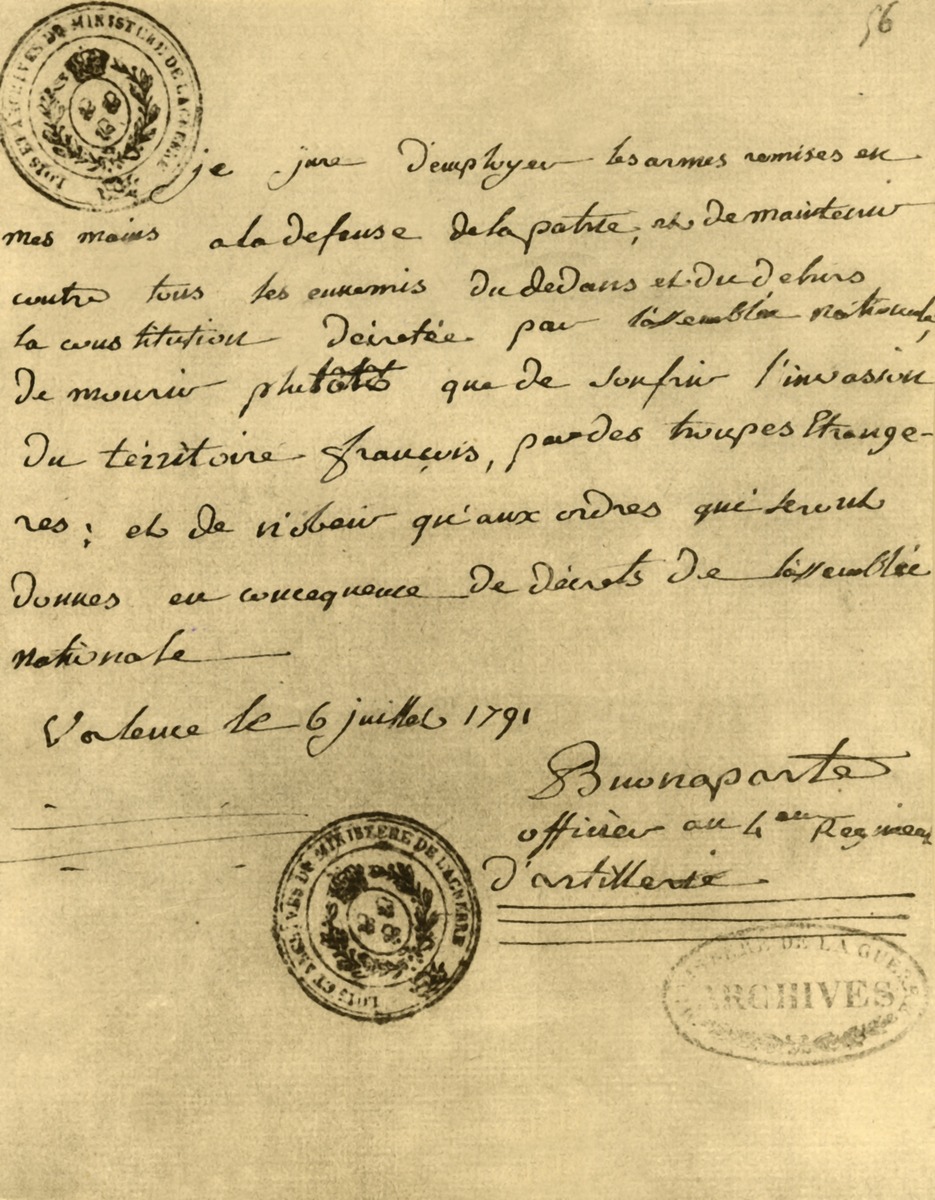 56
LOIS ET ARCHIVES DU MINISTERE DE LA GUERRE
je jure d'employer les armes remises en
mes mains a la defense de la patrie, et de maintenir
contre tous les ennemis du dedans et du dehors
la constitution décretée par l'assemblée nationale,
de mourir plutôt que de soufrir l'invasion
du térritoire françois, par des troupes Etrange-
res; et de n'obeir qu'aux ordres qui seront
donnes en concequence de décrets de l'assemblée
nationale
Valence le 6 juillet 1791
Buonaparte
officier au 4eme Regiment
d'artillerie
LOIS ET ARCHIVES DU MINISTERE DE LA GUERRE
MINISTERE DE LA GUERRE
ARCHIVES